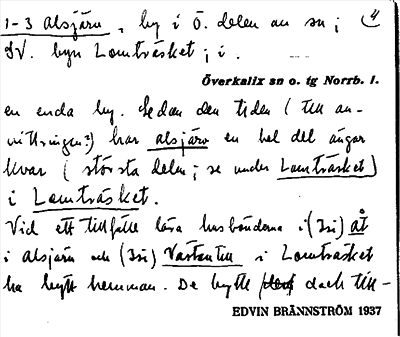 1-3 Alsjärv, by i Ö. delen av sn; 4
SV. byn Lomträsket; i.
Överkalix sn o. tg Norrb. l.
en enda by. Sedan den tiden (till an-
nittringen?) har alsjärv en hel del ängar
kvar (största delen; se under Lomträsket)
i Lomträsket.
Vid ett tillfälle lära husbönderna i (Isi) åt
i alsjärv och (Isi) Västantill i Lomträsket
ha bytt hemman. De bytte dock till-
EDVIN BRÄNNSTRÖM 1937